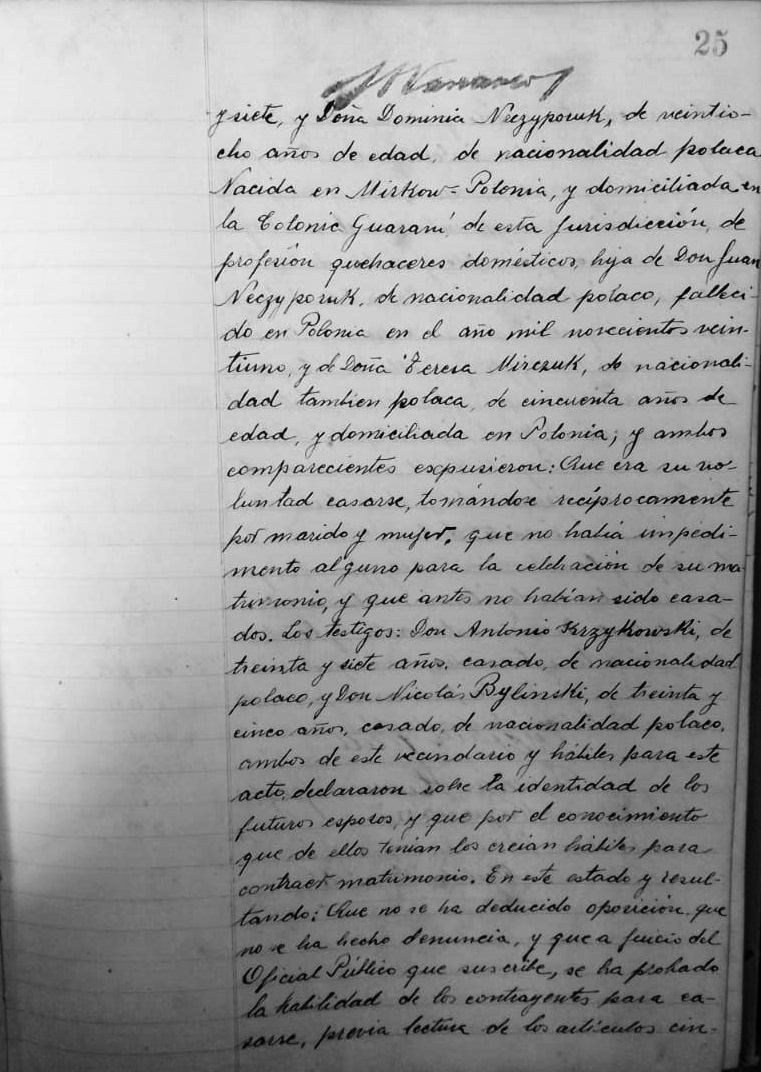 25
y siete, y Doña Dominia Neczyporuk, de veintio-
cho años de edad, de nacionalidad polaca
Nacida en Mirkow-Polonia, y domiciliada en
la Colonia Guaraní de esta jurisdicción, de
profesión quehaceres domésticos, hija de Don Juan
Neczyporuk, de nacionalidad polaco, falleci-
do en Polonia en el año mil novecientos vein-
tiuno, y de Doña Teresa Mirczuk, de nacionali-
dad tambien polaca, de cincuenta años de
edad, y domiciliada en Polonia; y ambos
comparecientes expusieron: Que era su vo-
luntad casarse, tomándose recíprocamente
por marido y mujer, que no había impedi-
mento alguno para la celebración de su ma
trimonio, y que antes no habían sido casa-
dos. Los testigos: Don Antonio Krzykowski, de
treinta y siete años, casado, de nacionalidad
polaco, y Don Nicolás Bylinski, de treinta y
cinco años, casado, de nacionalidad polaco,
ambos de este vecindario y hábiles para este
acto, declararon sobre la identidad de los
futuros esposos, y que por el conocimiento
que de ellos tenían los creían hábiles para
contraer matrimonio. En este estado y resul-
tando: Que no se ha deducido oposición, que
no se ha hecho denuncia, y que a juicio del
Oficial Público que suscribe, se ha probado
la habilidad de los contrayentes para ca-
sarse, previa lectura de los artículos cin-